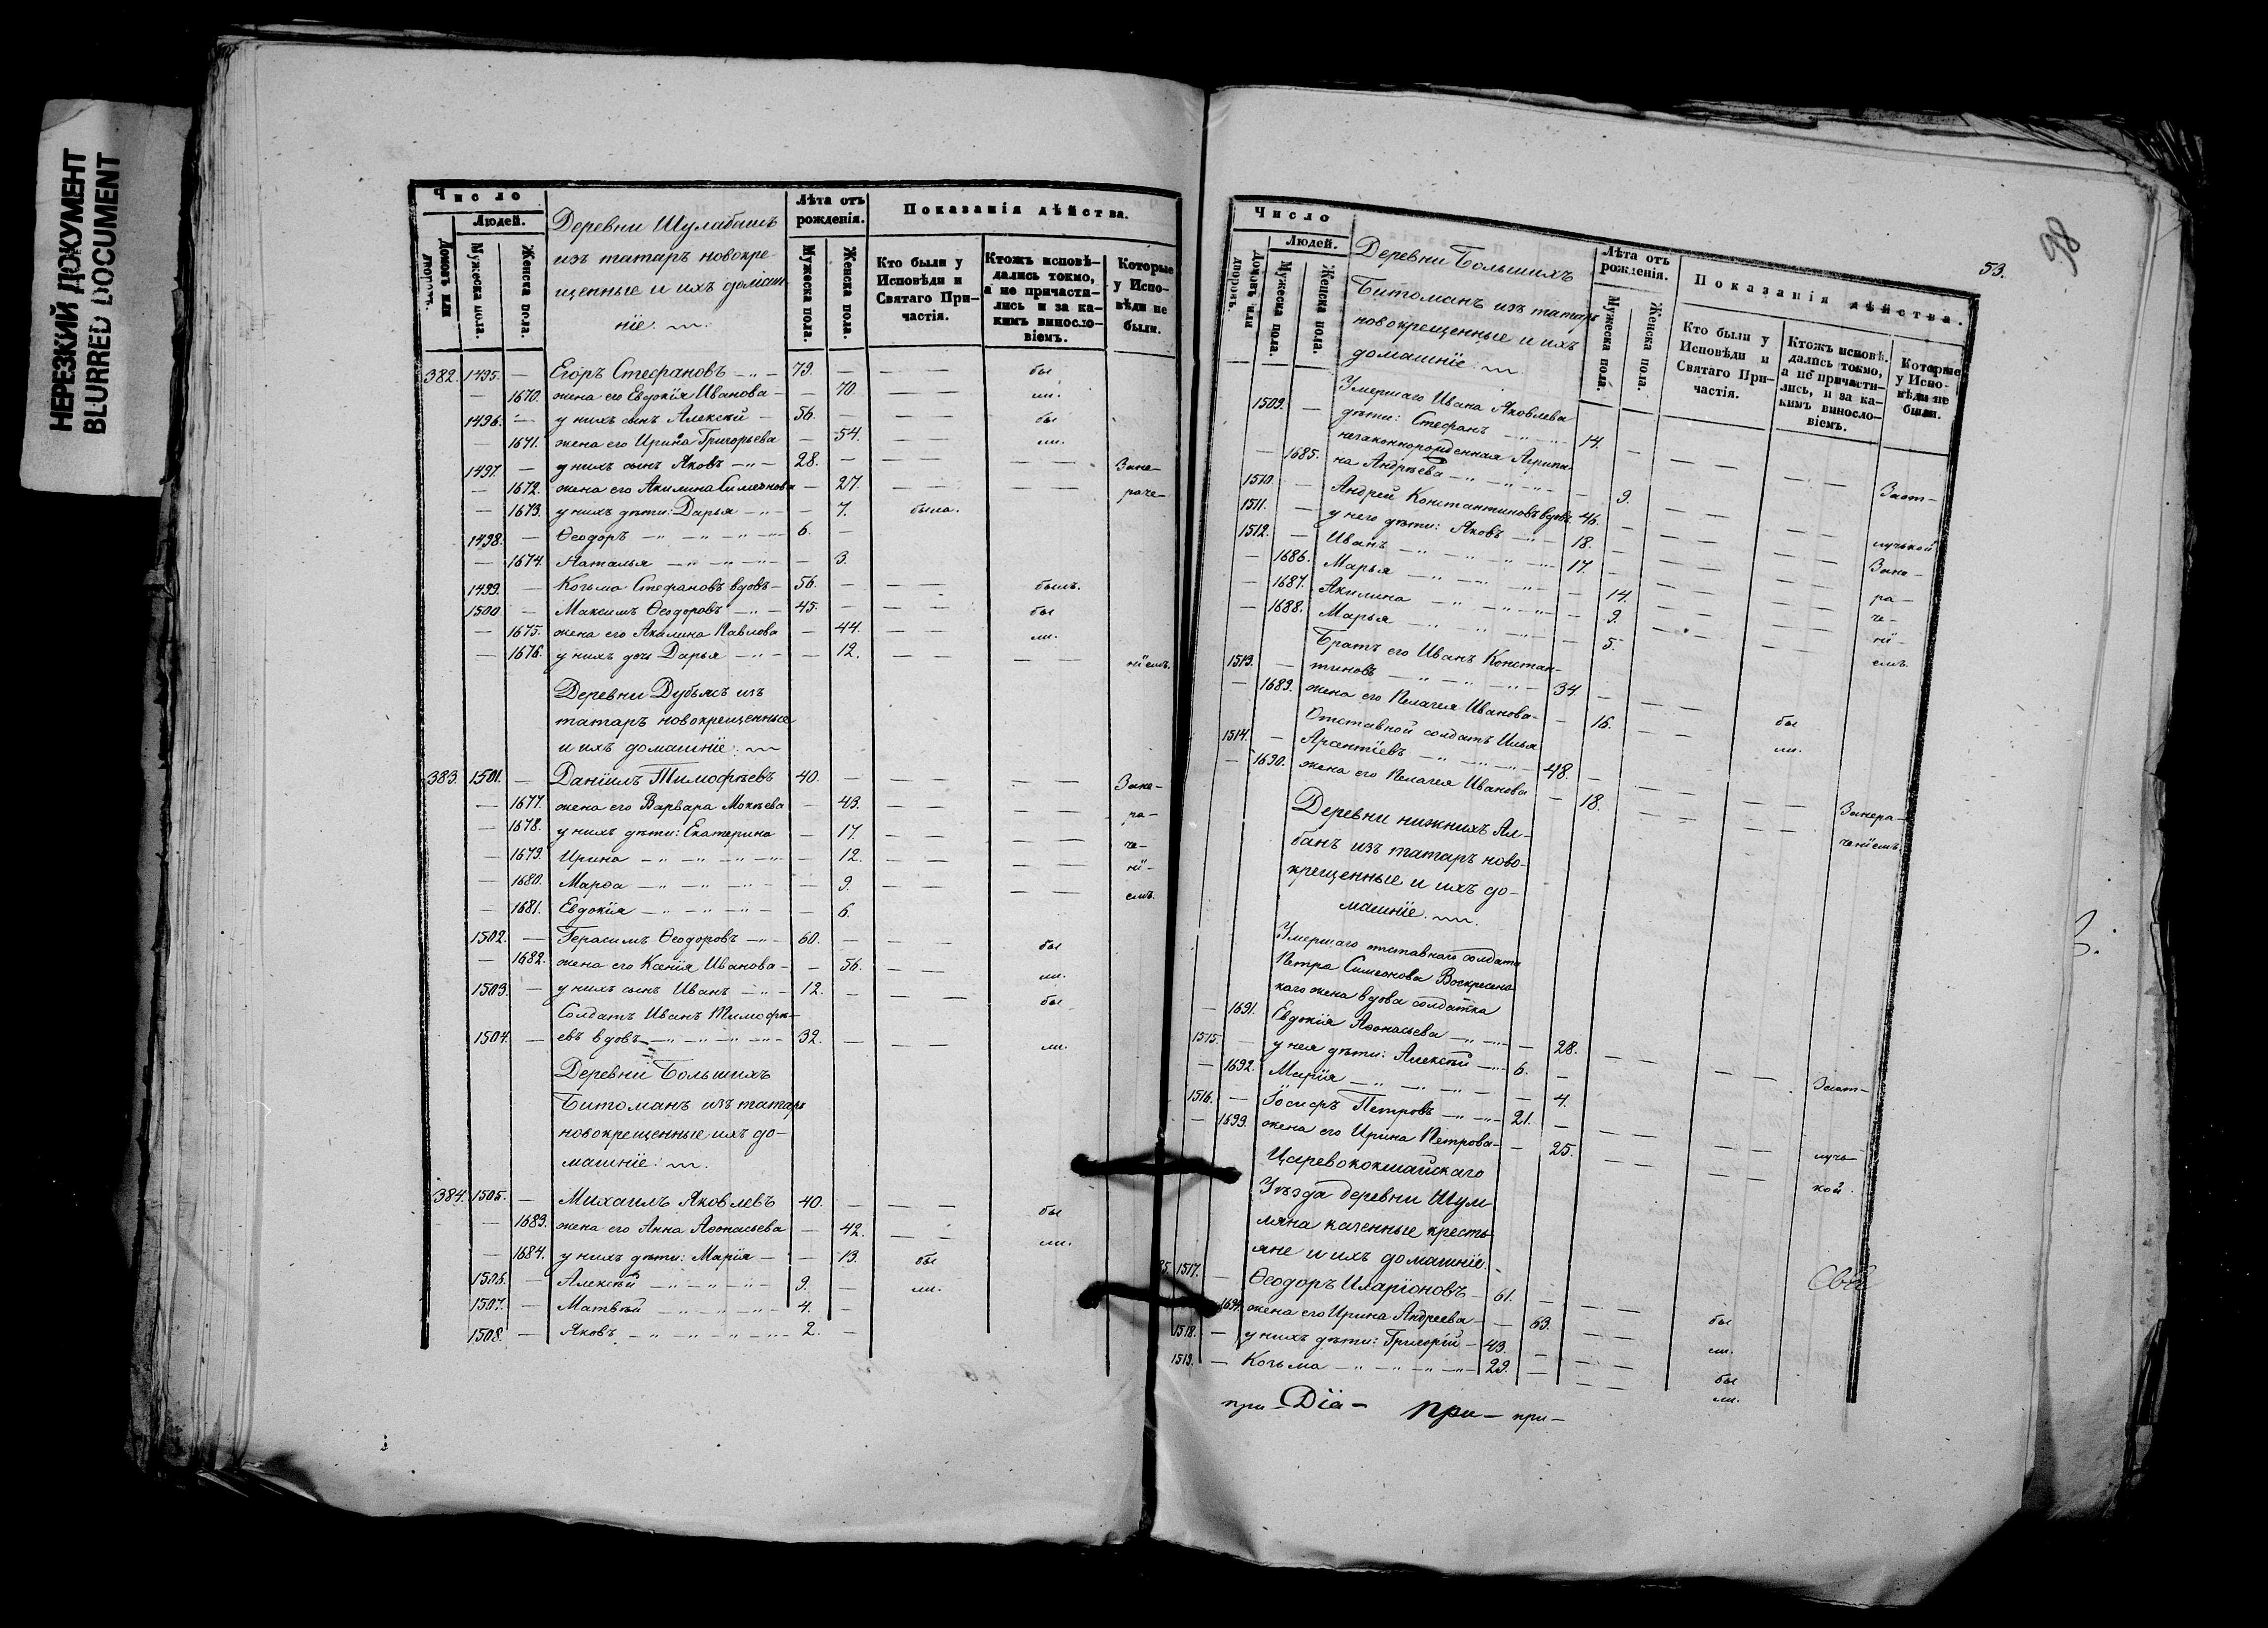 НЕРЕЗКИЙ ДОКУМЕНТ
BLURRED DOCUMENT
Число
Людей.
Домовъ или дворовъ.
Мужеска пола.
Женска пола.
Деревни Шулабашъ
изъ татаръ новокре-
щенные и ихъ домаш-
ніе.
Лѣта отъ рожденія.
Мужеска пола.
Женска пола.
Показанія дѣйства.
Кто были у Исповѣди и Святаго При-частія.
Ктожъ исповѣ-дались токмо, а не причасти-лись и за ка-кимъ винословіемъ.
Которые у Испо-вѣди не были.
382. 1495. — Егоръ Стефановъ 79. — — — бы
— 1670. жена его Евдокія Иванова — 70. — — ли.
1496. — у нихъ сынъ Алексѣй — 56. — — — бы
— 1671. жена его Ирина Григорьева — 54. — — ли.
1497. — у нихъ сынъ Яковъ 28. — — — — — Зане-
— 1672. жена его Акилина Симеонова — 27. — — — — раче-
— 1673. у нихъ дѣти: Дарья — 7. была.
1498. — Ѳеодоръ 6. —
— 1674. Наталья — 3.
1499. — Козьма Стефановъ вдовъ 56. — — — былъ.
1500 — Максимъ Ѳеодоровъ 45. — — — бы
— 1675. жена его Акилина Павлова — 44. — — ли.
— 1676. у нихъ дочь Дарья — 12. — — — — ніемъ.
Деревни Дубъясъ изъ
татаръ новокрещенные
и ихъ домашніе.
383. 1501. — Даніилъ Тимофѣевъ 40. — — — — — Зане-
— 1677. жена его Варвара Мокѣева — 43. — — — — ра-
— 1678. у нихъ дѣти: Екатерина — 17. — — — — че-
— 1679. Ирина — 12. — — — — ні-
— 1680. Марѳа — 9. — — — — емъ.
— 1681. Евдокія — 6.
1502. — Герасимъ Ѳеодоровъ 60. — — — бы
— 1682. жена его Ксенія Иванова — 56. — — ли.
1503. — у нихъ сынъ Иванъ 12. — — — бы
Солдатъ Иванъ Тимофѣ-
1504. — евъ вдовъ 32. — — — ли.
Деревни Большихъ
Битоманъ изъ татаръ
новокрещенные ихъ до-
машніе.
384. 1505. — Михаилъ Яковлевъ 40. — — — бы
— 1683. жена его Анна Аѳонасьева — 42. — — ли.
— 1684. у нихъ дѣти: Марія — 13. бы
1506. — Алексѣй 9. — ли.
1507. — Матвѣй 4. —
1508. — Яковъ 2. —
98
53.
Число
Людей.
Домовъ или дворовъ.
Мужеска пола.
Женска пола.
Деревни Большихъ
Битоманъ изъ татаръ
новокрещенные и ихъ
домашніе.
Лѣта отъ рожденія.
Мужеска пола.
Женска пола.
Показанія дѣйства.
Кто были у Исповѣди и Святаго При-частія.
Ктожъ исповѣ-дались токмо, а не причасти-лись, и за ка-кимъ винословіемъ.
Которые у Испо-вѣди не были.
Умершаго Ивана Яковлева
1509. — дѣти: Стефанъ 14. — — — — — Заот-
незаконнорожденная Агрипи-
— 1685. на Андрѣева — 9. — — — — лучкой
1510. — Андрей Константиновъ вдовъ 46. — — — — — Зане-
1511. — у него дѣти: Яковъ 18. — — — — — ра-
1512. — Иванъ 17. — — — — — че-
— 1686. Марья — 14. — — — — ні-
— 1687. Акилина — 9. — — — — емъ
— 1688. Марья — 5.
Братъ его Иванъ Констан-
1513. — тиновъ 34. — — — бы
— 1689. жена его Пелагея Иванова — 16. — — ли.
Отставной солдатъ Илья
1514. — Арсентіевъ 48. — — — — — Занера-
— 1690. жена его Пелагея Иванова — 18. — — — — ченіемъ.
Деревни нижнихъ Ал-
банъ изъ татаръ ново-
крещенные и ихъ до-
машніе.
Умершаго отставнаго солдата
Петра Симеонова Воскресенс-
каго жена вдова солдатка
— 1691. Евдокія Аѳонасьева — 28. — — — — Заот-
1515. — у нея дѣти: Алексѣй 6. —
— 1692. Марія — 4.
1516. — Іосифъ Петровъ 21. — — — — — луч-
— 1693. жена его Ирина Петрова — 25. — — — — кой.
Царевококшайскаго
Уѣзда деревни Шум-
ляна казенные кресть-
яне и ихъ домашніе.
85. 1517. — Ѳеодоръ Иларіоновъ 61. — — — бы
1694. жена его Ирина Андреева — 63. — — ли.
1518. — у нихъ дѣти: Григорій 43. — — — бы
1519. — Козьма 29. — — — ли.
при- Діа- при- при-